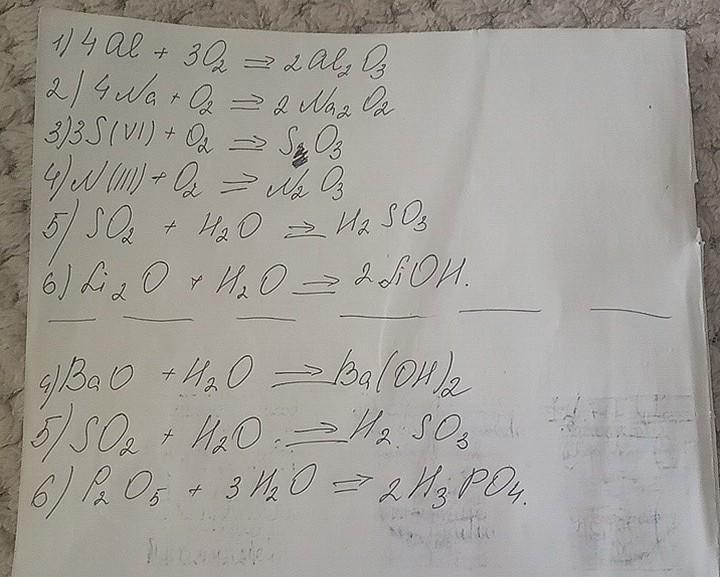 1) 4Al + 3O₂ ⇒ 2Al₂O₃
2) 4Na + O₂ ⇒ 2Na₂O₂
3) 3S(VI) + O₂ ⇒ SO₃
4) N(III) + O₂ ⇒ N₂O₃
5) SO₂ + H₂O ⇒ H₂SO₃
6) Li₂O + H₂O ⇒ 2LiOH.
4) BaO + H₂O ⇒ Ba(OH)₂
5) SO₂ + H₂O ⇒ H₂SO₃
6) P₂O₅ + 3H₂O ⇒ 2H₃PO₄.